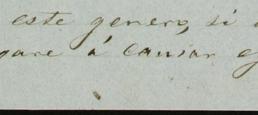 este genero, si
gare á causar